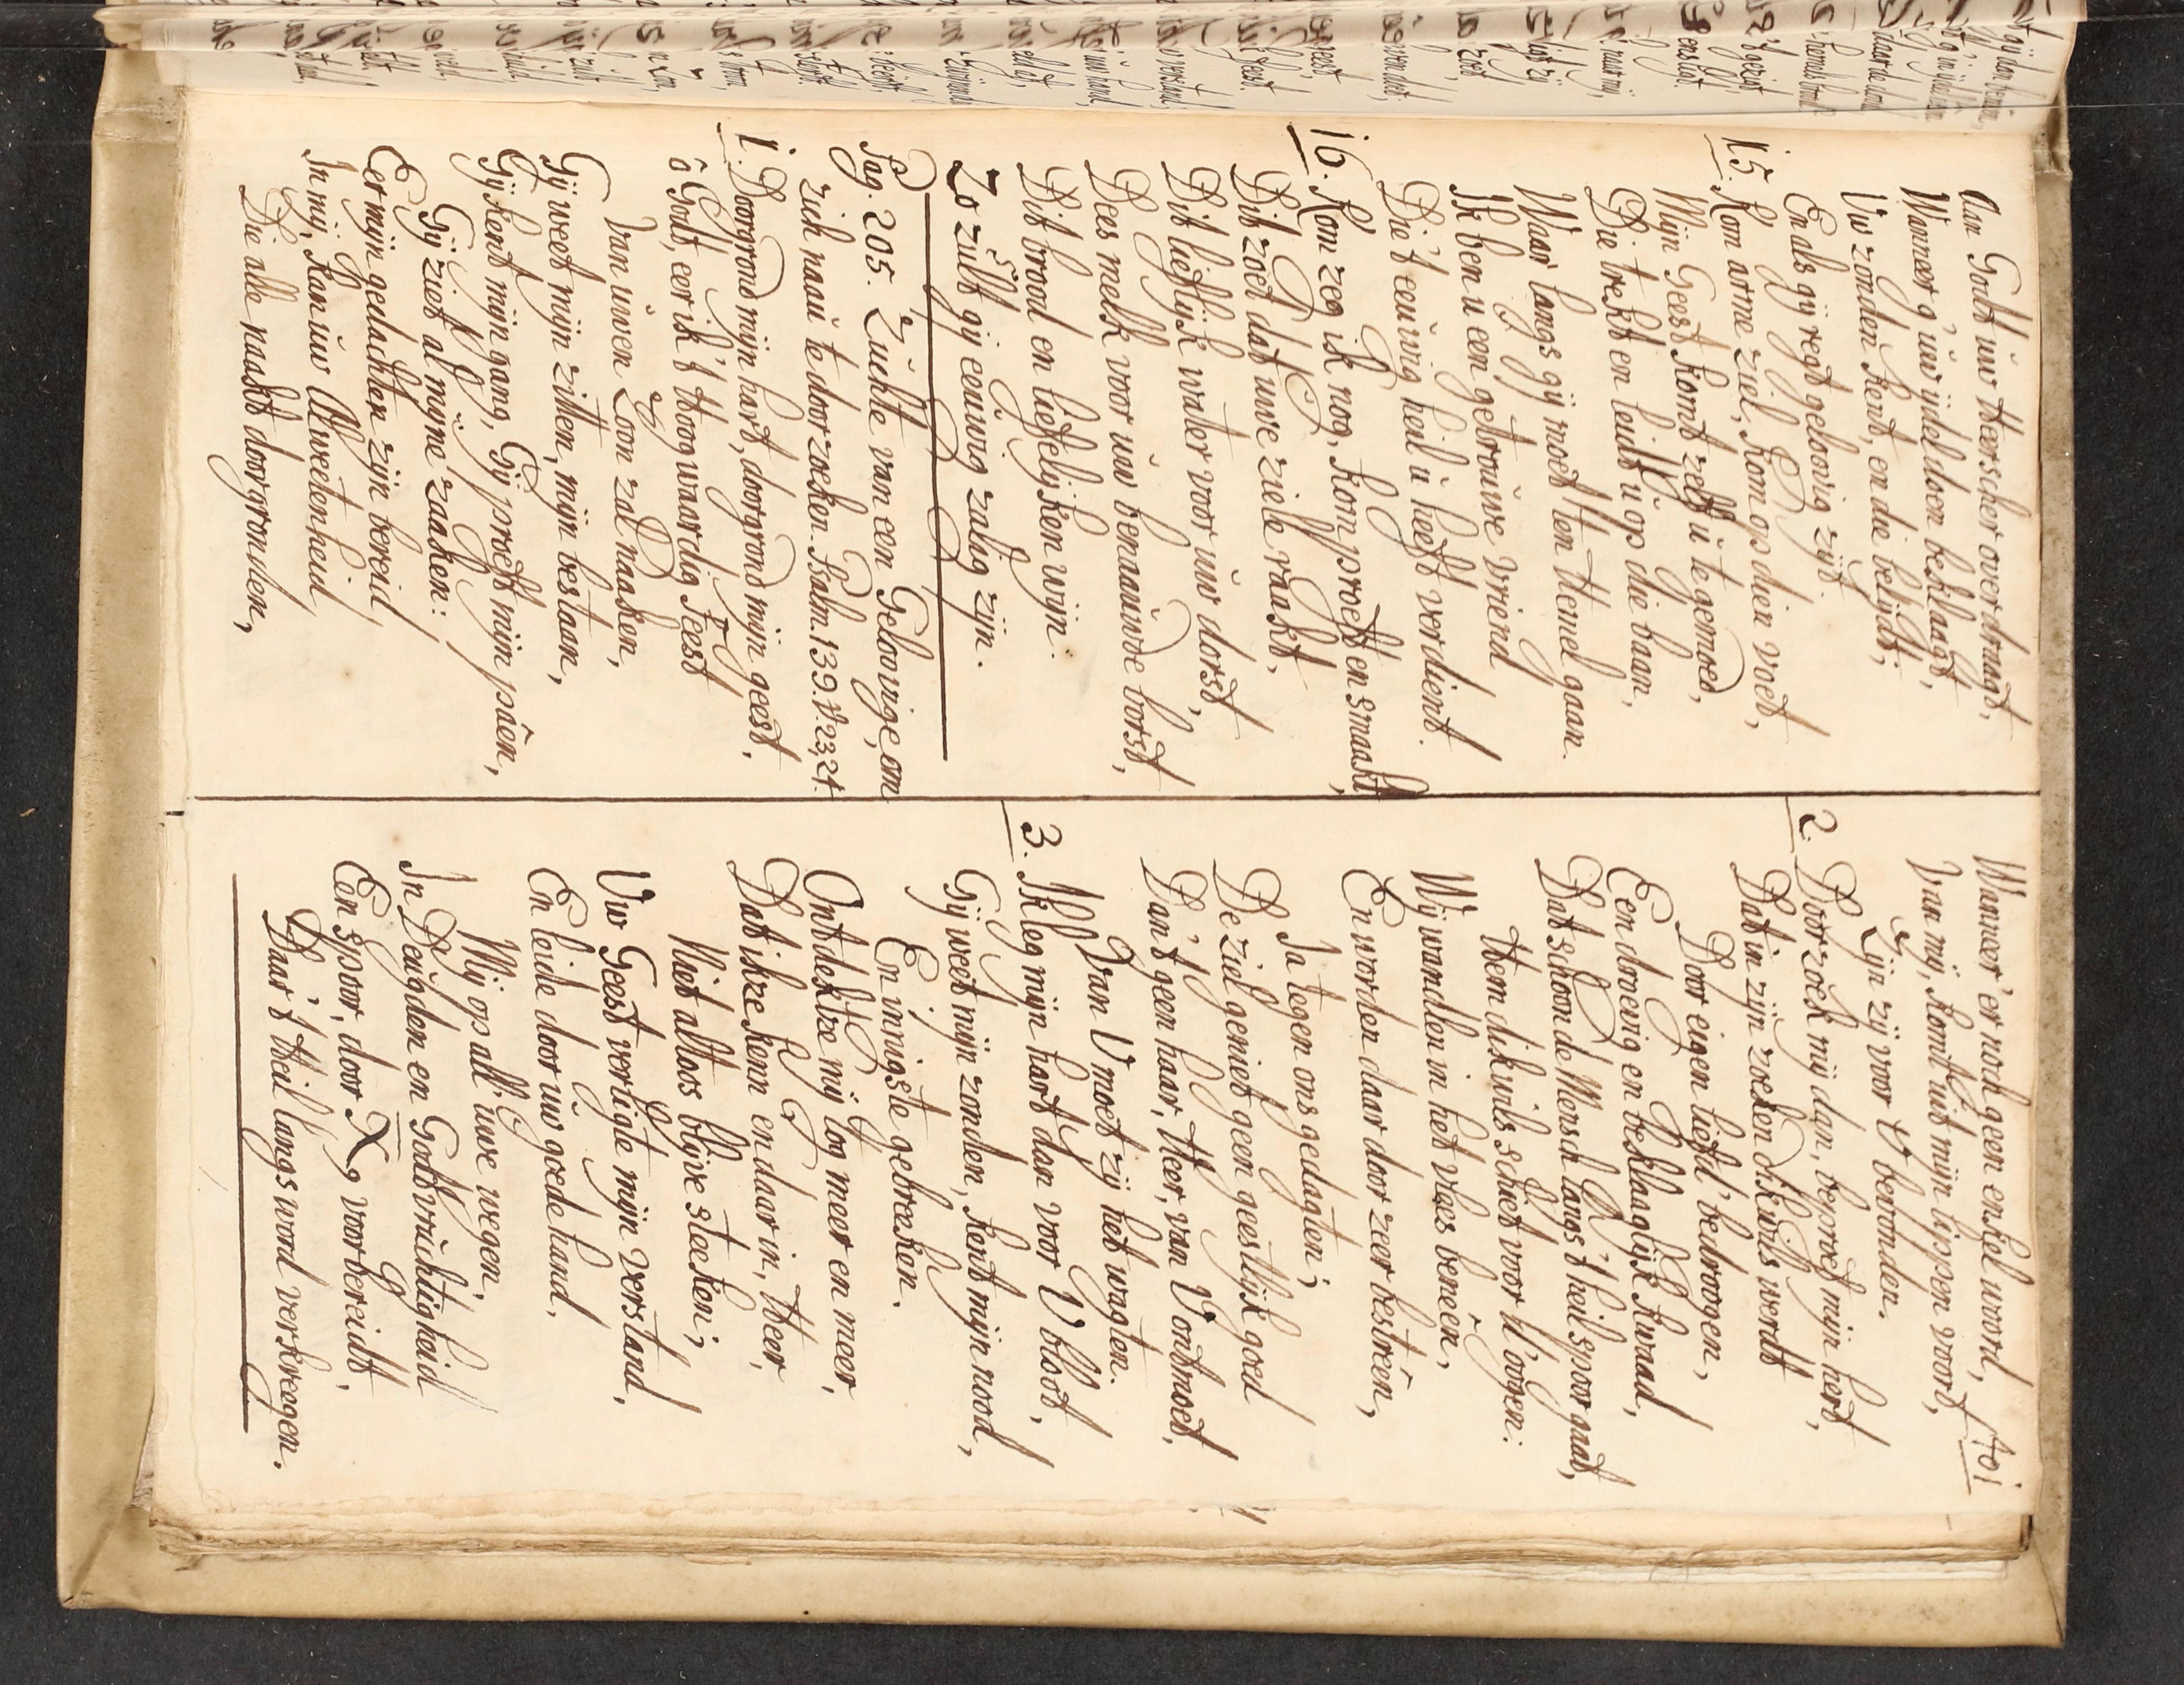 Aan Godt uw Heerscher overdraagt,
Wanneer g' uw ijdel doen beklaagt,
Uw zonden kent, en die belijdt,
En als gij regt geloovig zijt.
15. Kom arme ziel, kom op dien voet,
Mijn Geest komt zelf u te gemoed,
Die trekt en leidt u op die baan,
Waar langs gij moet ten Hemel gaan.
Ik ben u een getrouwe vriend
Die 't eeuwig heil u heeft verdient.
16. Kom zeg ik nog, kom proeft en smaakt,
Dit zoet dat uwe ziele raakt,
Dit lieflijk water voor uw dorst,
Dees melk voor uw benaauwde borst,
Dit brood en liefelijken wijn.
Zo zult gij eeuwig zalig zijn.
Pag. 205. Zuchte van een Gelovige, om
zich naau te doorzoeken. Psalm. 139. V. 23, 24.
1. Doorgrond mijn hart, doorgrond mijn geest,
ô Godt, eer ik 't Hoogwaardig Feest
Van uwen Zoon zal naaken,
Gij weet mijn zitten, mijn bestaan,
Gij kent mijn gang, Gij proeft mijn pâen,
Gij ziet al myne zaaken:
Eer mijn gedachten zijn bereid
In mij, kan uw Alweetenheid
Die alle naakt doorgronden,
Wanneer 'er noch geen enkel woord,
Van mij, komt uit mijn lippen voort,
Zijn zij voor U bevonden.
101
2. Doorzoek mij dan, beproef mijn hert,
Dat in zijn zoeken dikwils werdt
Door eigen liefd' bedroogen,
Een droevig en beklaaglijk kwaad,
Dat schoon de Mensch langs 't heilspoor gaat,
Hem dikwils schiet voor d' oogen:
Wij wandlen in het vlees beneen,
En worden daar door zeer bestreên,
Ja tegen ons gedagten;
De ziel geniet geen geestlijk goed
Dan 't geen haar, Heer, van U ontmoet,
Van U moet zij het wagten.
3. Ik leg mijn hart dan voor U bloot,
Gij weet mijn zonden, kent mijn nood,
En innigste gebreeken.
Ontdektze mij tog meer en meer,
Dat ikze kenn en daar in, Heer,
Niet altoos blijve steeken;
Uw Geest verligte mijn verstand,
En leide door uw goede hand,
Mij op all' uwe wegen,
In Deugden en Godtvruchtigheid
Een spoor, door X9 voorbereidt,
Daar 't Heil langs word verkreegen.